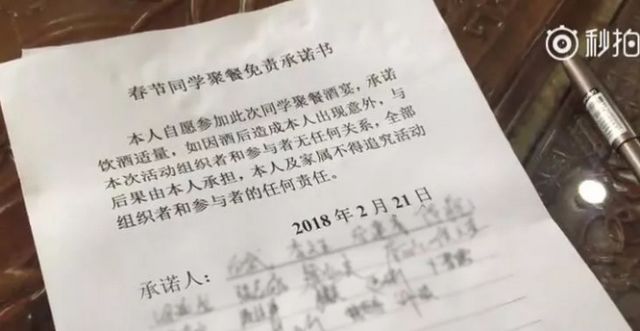 秒拍
春节同学聚餐免责承诺书
本人自愿参加此次同学聚餐酒宴，承诺
饮酒适量，如因酒后造成本人出现意外，与
本次活动组织者和参与者无任何关系，全部
后果由本人承担，本人及家属不得追究活动
组织者和参与者的任何责任。
2018 年 2 月 21 日
承诺人：